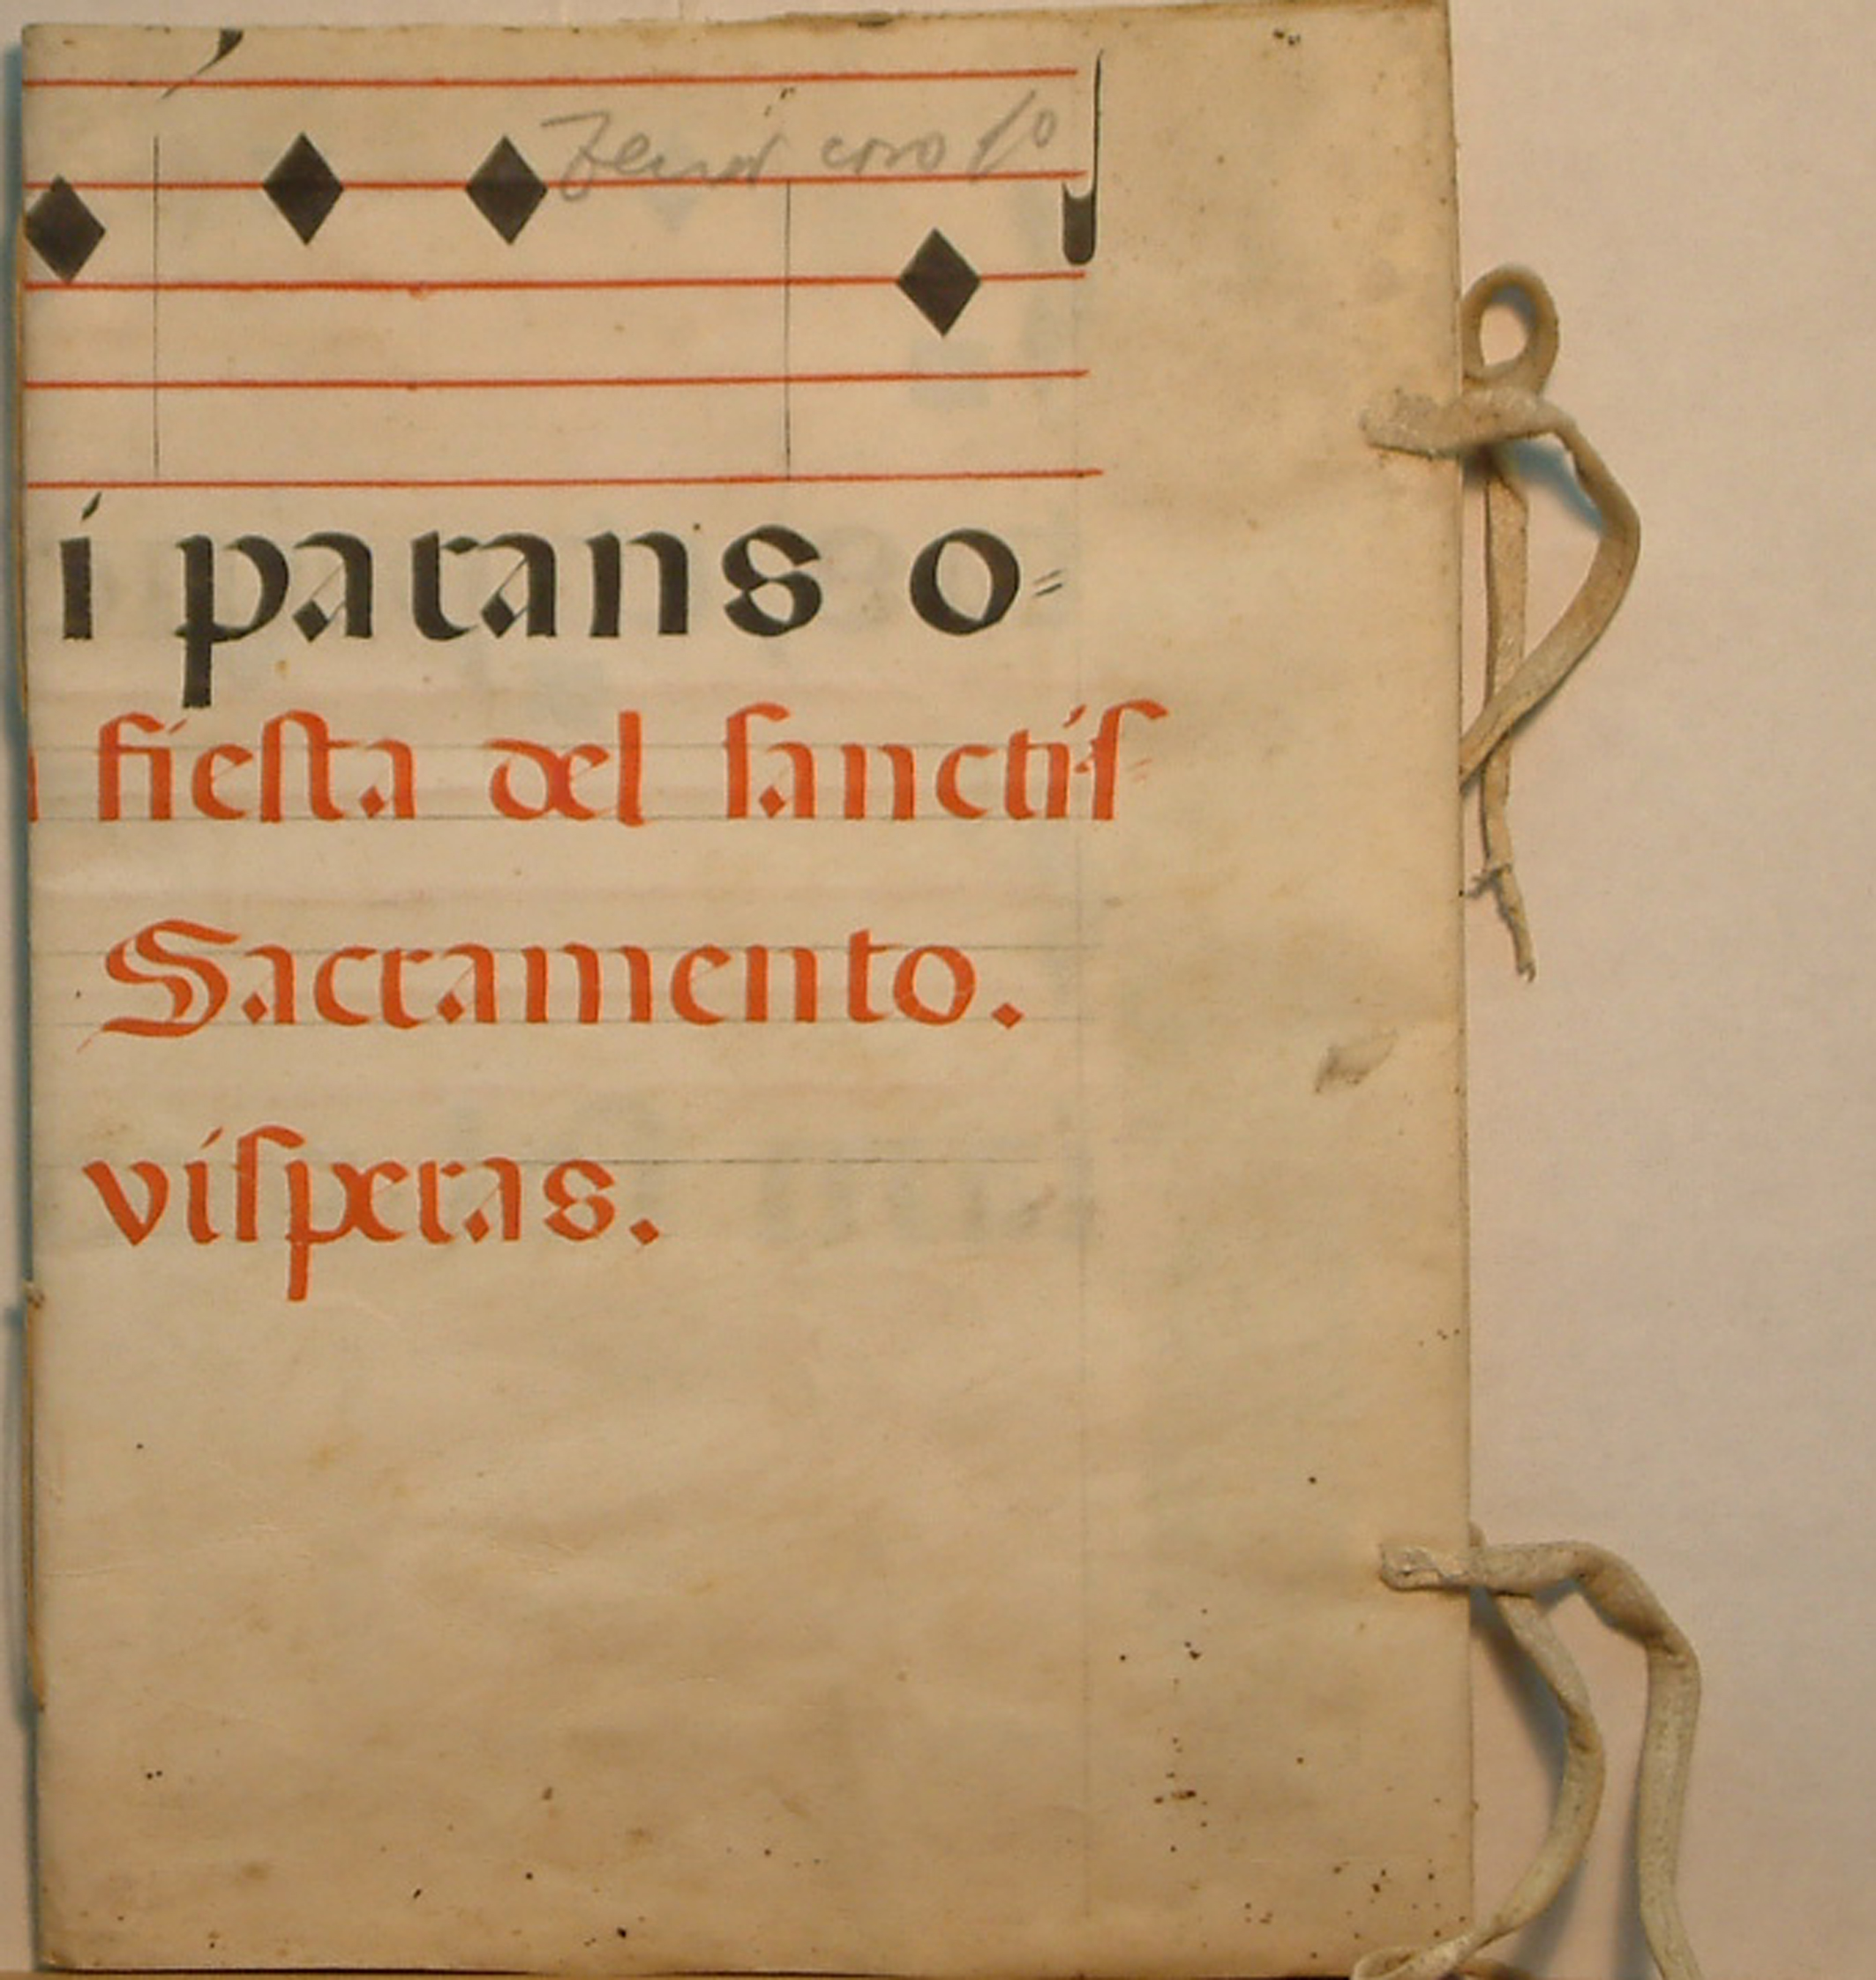 Tenor coro 1º
i parans o=
fiesta del sanctis=
Sacramento.
visperas.